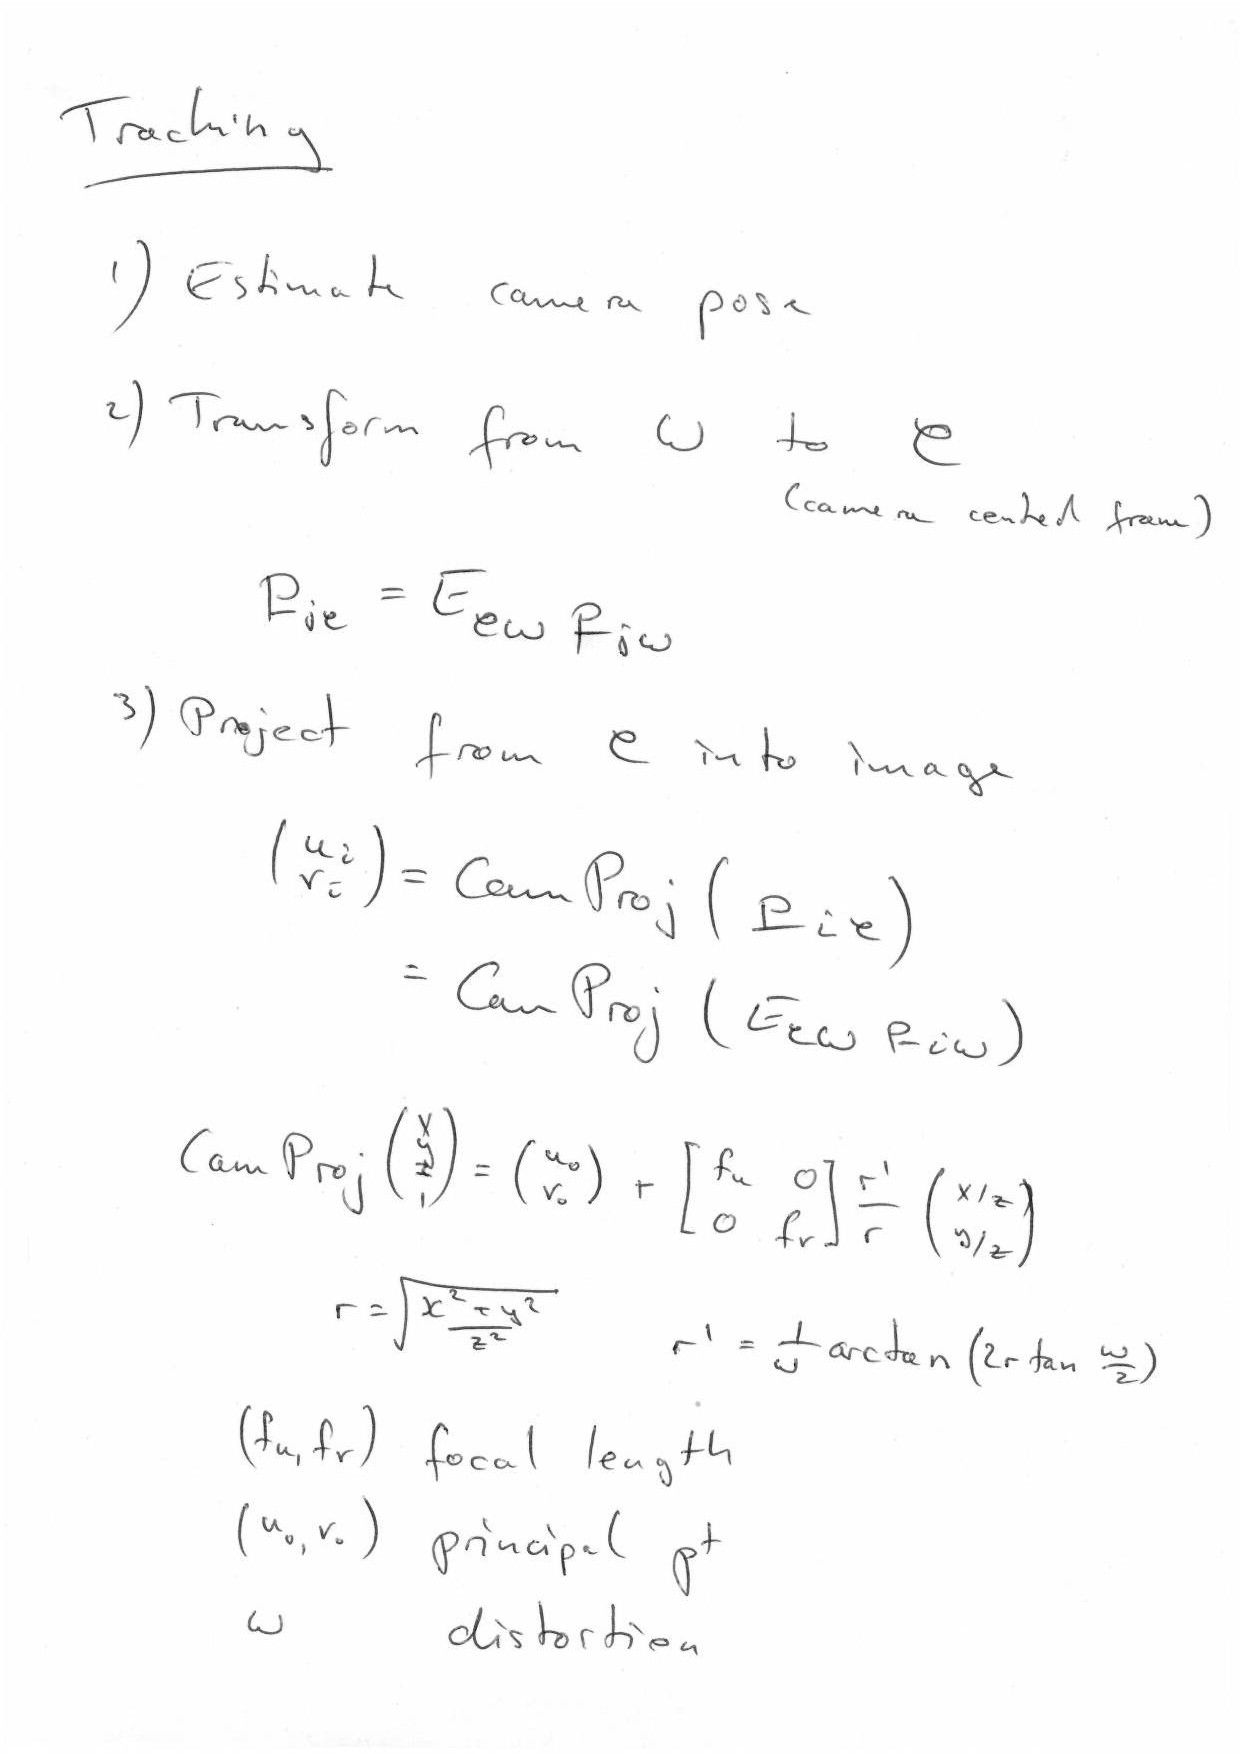 Tracking
1) Estimate camera pose
2) Transform from W to C
(camera centred frame)
P_jc = E_cw P_jw
3) Project from C into image
(u_i v_i) = CamProj(P_ic)
= CamProj(E_cw P_iw)
CamProj(x y z 1) = (u_0 v_0) + [f_u 0 0 f_v] r'/r (x/z y/z)
r = √((x² + y²)/z²) r' = 1/ω arctan(2r tan ω/2)
(f_u, f_v) focal length
(u_0, v_0) principal pt
ω distortion